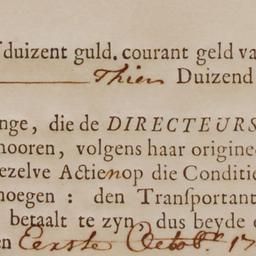 duizent guld. courant geld va
Thien Duizend
nge, die de DIRECTEURS
hooren, volgens haar originee
ezelve Actien op die Conditie
noegen : den Transportant
betaalt te zyn, dus beyde e
en Eerste Octob.r 17